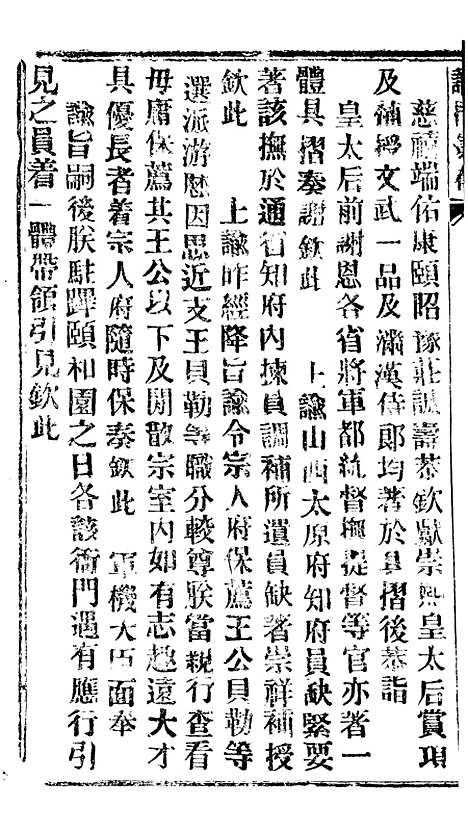 慈禧端佑康頤昭豫莊誠壽恭欽獻崇熙皇太后賞項
及補授文武一品及滿漢侍郎均著於具摺後恭詣
皇太后前謝恩各省將軍都統督撫提督等官亦著一
體具摺奏謝欽此　　上諭山西太原府知府員缺緊要
著該撫於通省知府內揀員調補所遺員缺著崇祥補授
欽此　　上諭昨經降旨諭令宗人府保薦王公貝勒等
選派游歷因思近支王貝勒等職分較尊朕當親行查看
毋庸保薦其王公以下及閒散宗室內如有志趣遠大才
具優長者着宗人府隨時保奏欽此　軍機大臣面奉
諭旨嗣後朕駐蹕頤和園之日各該衙門遇有應行引
見之員着一體帶領引見欽此